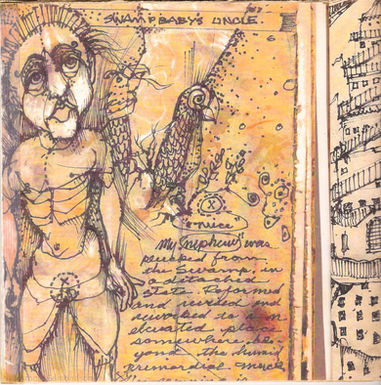 SWAMP BABY'S UNCLE
6
X
"Twice
My "nephew" was
pulped from
the Swamp, in
a detached
state. Reformed
and revived and
devoted to a
elevated place
somewhere be-
yond the humid
primordial muck